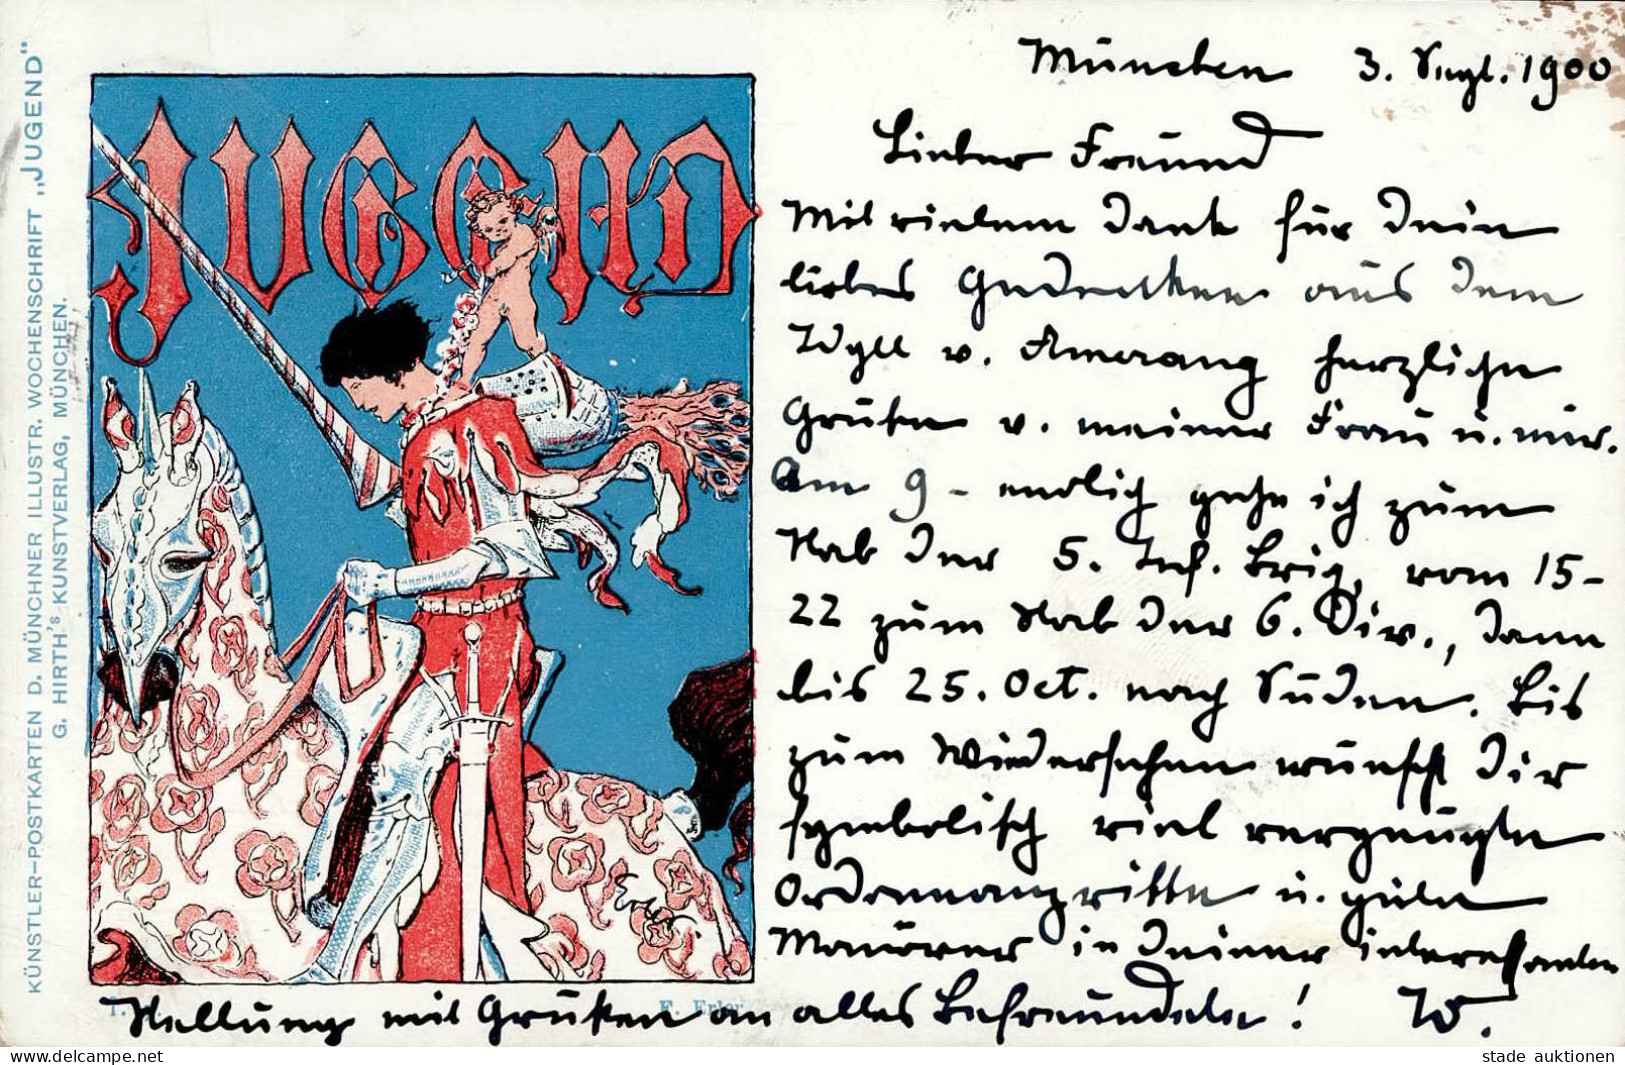 KÜNSTLER-POSTKARTEN D. MÜNCHNER ILLUSTR. WOCHENSCHRIFT „JUGEND"
G. HIRTH'S KUNSTVERLAG, MÜNCHEN.
JUGEND
Erler
F. Erler
München 3. Sept. 1900
Lieber Freund
Mit vielem Dank für Dein
liebes Gedenken aus dem
Idyll v. Amerang herzliche
Grüße v. meiner Frau u. mir.
Am 9 - endlich gehe ich zum
Stab der 5. Inf. Brig, vom 15-
22 zum Stab der 6. Div., dann
bis 25. Oct. nach Süden. Bis
zum Wiedersehen wünscht Dir
symbolisch viel vergnügte
Ordonnanzritte u. gute
Manöver in Deiner interessanten
Stellung mit Grüßen an alles Befreundete! W.
stade auktionen
www.delcampe.com